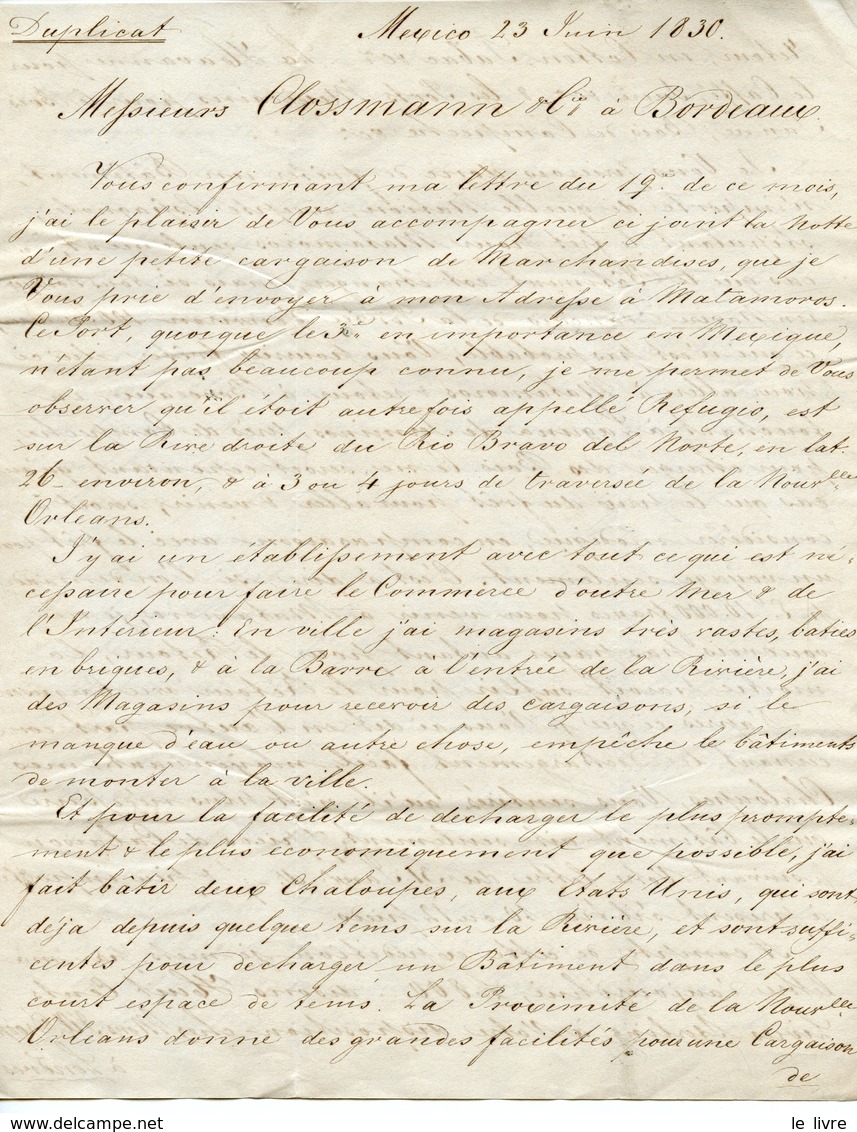 Duplicat
Mexico 23 Juin 1830.
Messieurs Clossmann & Cie à Bordeaux
Vous confirmant ma lettre du 19. de ce mois,
j'ai le plaisir de Vous accompagner ci joint la Notte
d'une petite cargaison de Marchandises, que je
Vous prie d'envoyer à mon Adresse à Matamoros.
Ce Port, quoique le 3e en importance en Mexique,
n'étant pas beaucoup connu, je me permet de Vous
observer qu'il étoit autrefois appellé Refugio, est
sur la Rive droite du Rio Bravo del Norte, en lat.
26 environ, & à 3 ou 4 jours de traversée de la Nouvlle
Orleans.
J'y ai un établissement avec tout ce qui est né-
cessaire pour faire le Commerce d'outre Mer & de
l'Intérieur: En ville j'ai magasins très vastes, baties
en briques, & à la Barre à l'entrée de la Rivière, j'ai
des Magasins pour recevoir des cargaisons, si le
manque d'eau ou autre chose, empêche le bâtiments
de monter à la ville.
Et pour la facilité de decharger le plus prompte-
ment & le plus economiquement que possible, j'ai
fait bâtir deux Chaloupes, aux Etats Unis, qui sont
déja depuis quelque tems sur la Rivière, et sont suffi-
centes pour decharger un Bâtiment dans le plus
court espace de tems. La Proximité de la Nouvlle
Orleans donne des grandes facilités pour une Cargaison
de
le livre